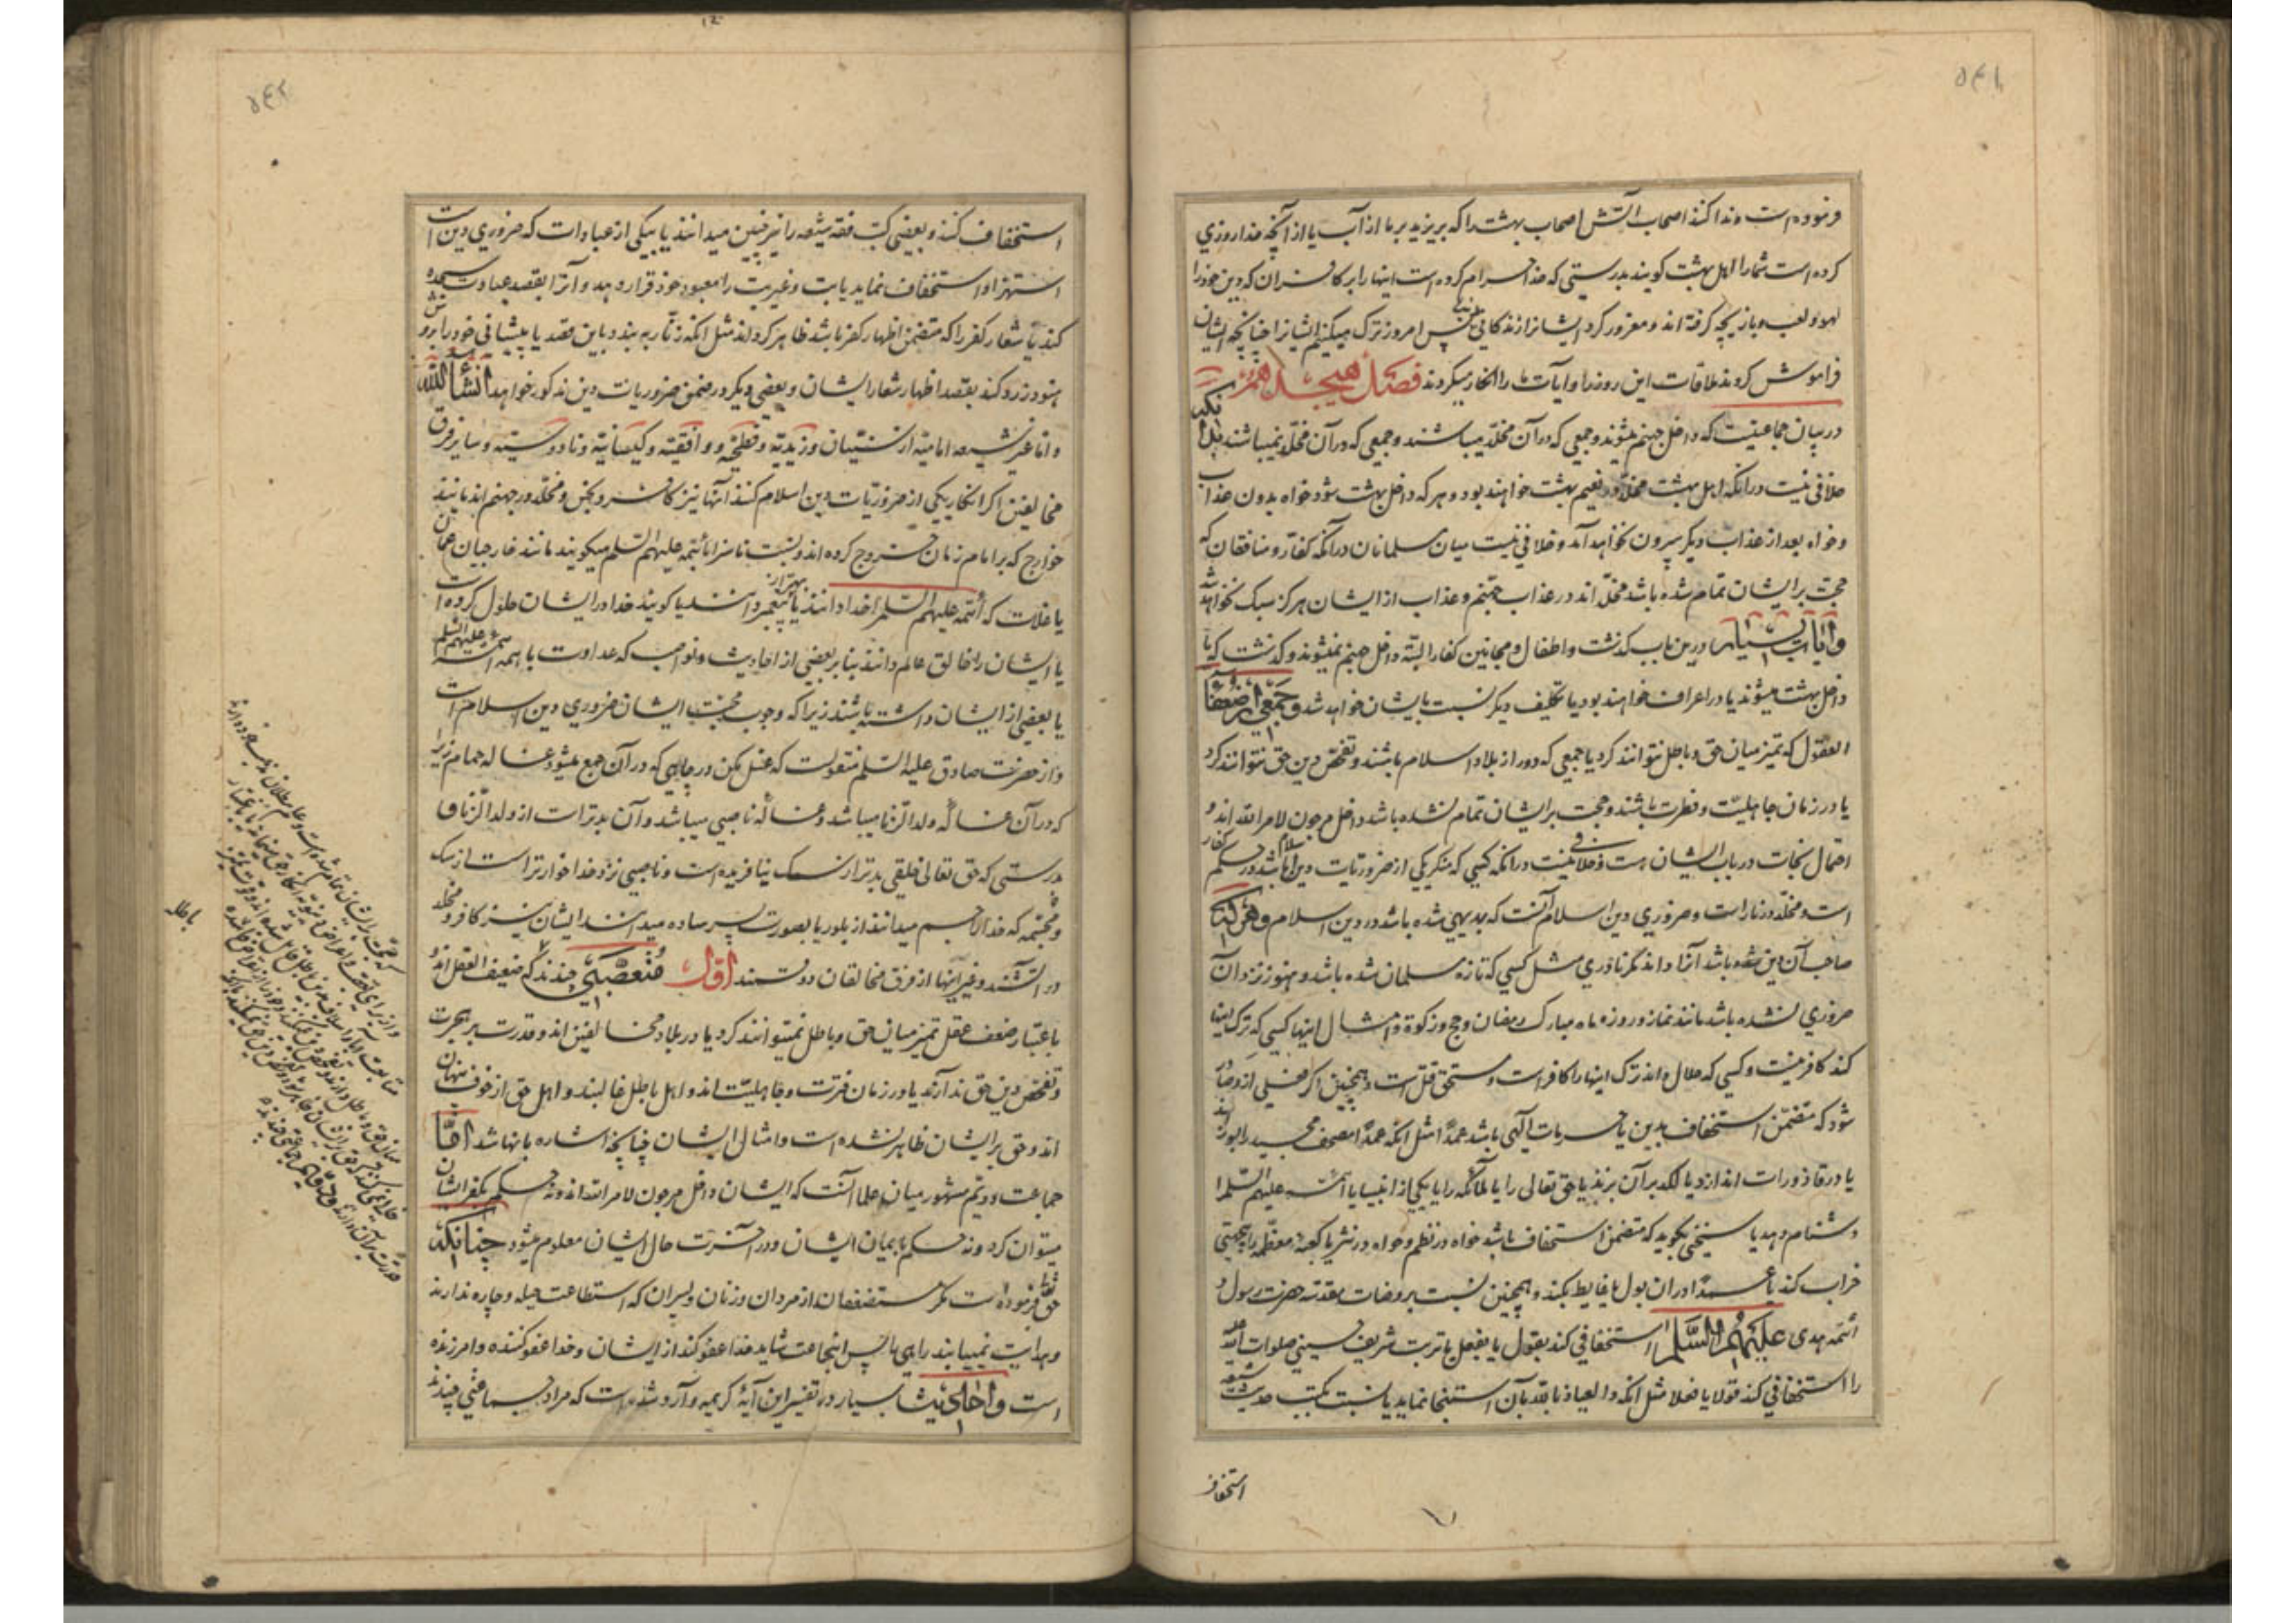 ۵۴۱
فرموده است و ندا کنند اصحاب آتش اصحاب بهشت را که بریزید بر ما از آب یا از آنچه خدا روزی
کرده است شما را اهل بهشت گویند بدرستی که خدا حرام کرده است اینها را بر کافران که دین خود را
لهو و لعب و بازیچه گرفته اند و مغرور کرد ایشانرا زندکانی دنیا پس امروز ترک میکنیم ایشانرا چنانچه ایشان
فراموش کردند ملاقات این روز را و آیات ما را انکار میکردند فصل هیجدهم
در بیان جماعتیست که داخل جهنم میشوند و جمعی که در آن مخلد میباشند و جمعی که در آن مخلد نمیباشند بدانکه
خلافی نیست در آنکه اهل بهشت مخلد در نعیم بهشت خواهند بود و هر که داخل بهشت شود خواه بدون عذاب
و خواه بعد از عذاب دیگر بیرون نخواهد آمد و خلافی نیست میان مسلمانان در آنکه کفار و منافقان که
حجت بر ایشان تمام شده باشد مخلد اند در عذاب جهنم و عذاب از ایشان هرگز سبک نخواهد شد
و آیات بسیار درین باب کذشت و اطفال و مجانین کفار البته داخل جهنم نمیشوند و کذشت که یا
داخل بهشت میشوند یا در اعراف خواهند بود یا تکلیف دیگر نسبت بایشان خواهد شد و جمعی از ضعفاء
العقول که تمیز میان حق و باطل نتوانند کرد یا جمعی که دور از بلاد اسلام باشند و تفحص دین حق نتوانند کرد
یا در زمان جاهلیت و فطرت باشند و حجت بر ایشان تمام نشده باشد داخل مرجون لامر الله اند و
احتمال نجات در باب ایشان هست و خلافی نیست در آنکه کسی که منکر یکی از ضروریات دین اسلام باشد در حکم کفار
است و مخلد در نار است و ضروری دین اسلام آنست که بدیهی شده باشد در دین اسلام و هر کس که
صاحب آن دین شده باشد آنرا داند مکر نادری مثل کسی که تازه مسلمان شده باشد و هنوز نزد آن
ضروری نشده باشد مانند نماز و روزه ماه مبارک رمضان و حج و زکوة و امثال اینها کسی که ترک اینها
کند کافر نیست و کسی که حلال داند ترک اینها را کافر است و مستحق قتل است و همچنین اگر فعلی از او صادر
شود که متضمن استخفاف بدین یا حرمات الهی باشد عمدا مثل آنکه عمدا مصحف مجید را بسوزاند
یا در قاذورات اندازد یا لکد بر آن بزند یا حق تعالی را یا ملائکه را یا یکی از انبیا یا ائمه علیهم السلم را
دشنام دهد یا سخنی بگوید که متضمن استخفاف باشد خواه در نظم و خواه در نثر یا کعبه معظمه را بی جهتی
خراب کند یا عمدا در آن بول یا غایط بکند و همچنین نسبت بروضات مقدسه حضرت رسول و
ائمه هدی علیهم السلم استخفافی کند بقول یا بفعل یا تربت شریف حسینی صلوات الله علیه
را استخفافی کند قولا یا فعلا مثل آنکه والعیاذ بالله بآن استنجا نماید یا نسبت بکتب حدیث شیعه
استخفاف
۵۴۲
استخفاف کند و بعضی کتب فقه شیعه را نیز چنین میدانند یا بیکی از عبادات که ضروری دین است
استهزا و استخفاف نماید یا بت و غیر بت را معبود خود قرار دهد و آنرا بقصد عبادت سجده
کند یا شعار کفر را که متضمن اظهار کفر باشد ظاهر کرداند مثل آنکه زنار به بندد باین قصد یا پیشانی خود را بروش
هنود زرد کند بقصد اظهار شعار ایشان و بعضی دیگر در ضمن ضروریات دین مذکور خواهد شد انشاء الله
و اما غیر شیعه امامیه از سنیان و زیدیه و فطحیه و واقفیه و کیسانیه و ناووسیه و سایر فرق
مخالفین اگر انکار یکی از ضروریات دین اسلام کنند آنها نیز کافر و نجس و مخلد در جهنم اند مانند
خوارج که بر امام زمان خروج کرده اند و نسبت ناسزا بائمه علیهم السلم میکویند مانند خارجیان عمان
یا غلات که ائمه علیهم السلم را خدا دانند یا بهتر از پیغمبر دانند یا کویند خدا در ایشان حلول کرده است
یا ایشان را خالق عالم دانند بنا بر بعضی از احادیث و نواصب که عداوت با همه ائمه علیهم السلم
یا بعضی از ایشان داشته باشند زیرا که وجوب محبت ایشان ضروری دین اسلام است
و از حضرت صادق علیه السلم منقولست که غسل مکن در چاهی که در آن جمع میشود غساله حمام زیرا
که در آن غساله ولد الزنا میباشد و غساله ناصبی میباشد و آن بدتر است از ولد الزنا
بدرستی که حق تعالی خلقی بدتر از سک نیافریده است و ناصبی نزد خدا خوارتر است از سک
و مجسمه که خدا را جسم میدانند از بلور یا بصورت پسر ساده میدانند ایشان نیز کافر و مخلد
در آتشند و غیر آنها از فرق مخالفان دو قسمند اول متعصبی چندند که ضعیف العقل اند
باعتبار ضعف عقل تمیز میان حق و باطل نمیتوانند کرد یا در بلاد مخالفین اند و قدرت بر هجرت
و تفحص دین حق ندارند یا در زمان فترت و جاهلیت اند و اهل باطل غالبند و اهل حق از خوف پنهان
اند و حق بر ایشان ظاهر نشده است و امثال ایشان چنانچه اشاره بآنها شد اما
جماعت دویم مشهور میان علما آنست که ایشان داخل مرجون لامر الله اند و نه حکم بکفر ایشان
میتوان کرد و نه حکم بایمان ایشان و در آخرت حال ایشان معلوم میشود چنانکه
حق تعالی فرموده است مکر مستضعفان از مردان و زنان و پسران که استطاعت حیله و چاره ندارند
و هدایت نمییابند راهی را پس اینجماعت شاید خدا عفو کند از ایشان و خدا عفو کننده و امرزنده
است و احادیث بسیار در تفسیر این آیه کریمه وارد شده است که مراد جماعتی چندند